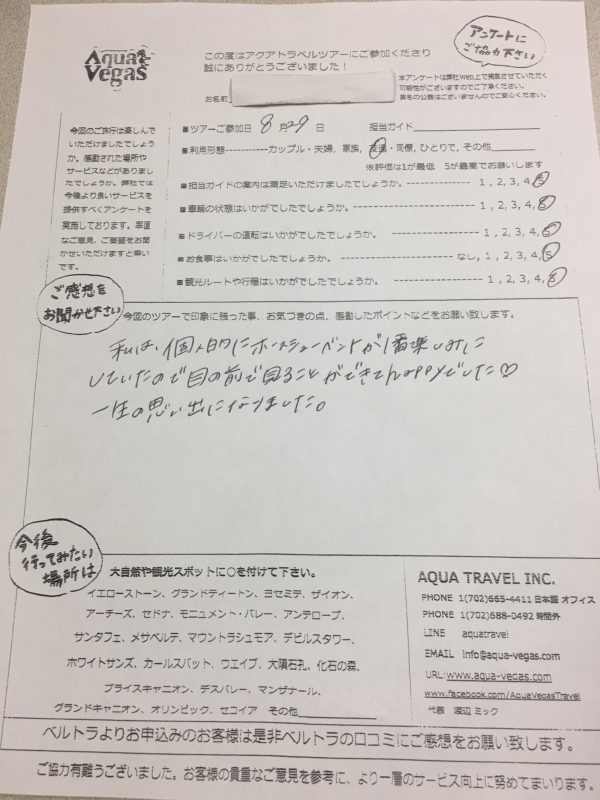 Aqua Vegas
この度はアクアトラベルツアーにご参加くださり
誠にありがとうございました！
アンケートに
ご協力下さい
お名前
本アンケートは弊社Web上で掲載させていただく
可能性がございますのでご了承ください。
実名の公表はございませんのでご安心ください。
今回のご旅行は楽しんで
いただけましたでしょう
か。感動された場所や
サービスなどがありまし
たでしょうか。弊社では
今後より良いサービスを
提供すべくアンケートを
実施しております。率直
なご意見、ご要望をお聞
かせいただけますと幸い
です。
■ツアーご参加日 8 月 29 日 担当ガイド
■利用形態-----------カップル・夫婦, 家族, 友達・同僚, ひとりで, その他
※評価は1が最低 5が最高でお願いします
■担当ガイドの案内は満足いただけましたでしょうか。--------------- 1, 2, 3, 4, 5
■車輛の状態はいかがでしたでしょうか。--------------------------- 1, 2, 3, 4, 5
■ドライバーの運転はいかがでしたでしょうか。--------------------- 1, 2, 3, 4, 5
■お食事はいかがでしたでしょうか。-------------------------- なし, 1, 2, 3, 4, 5
■観光ルートや行程はいかがでしたでしょうか。--------------------- 1, 2, 3, 4, 5
ご感想を
お聞かせ下さい
今回のツアーで印象に残った事、お気づきの点、感動したポイントなどをお願い致します。
私は、個人的にホースシューベントが1番楽しみに
していたので目の前で見ることができてhappyでした♡
一生の思い出になりました。
今後
行ってみたい
場所は
大自然や観光スポットに○を付けて下さい。
イエローストーン、グランドティートン、ヨセミテ、ザイオン、
アーチーズ、セドナ、モニュメント・バレー、アンテロープ、
サンタフェ、メサベルデ、マウントラシュモア、デビルスタワー、
ホワイトサンズ、カールスバット、ウエイブ、大隕石孔、化石の森、
ブライスキャニオン、デスバレー、マンザナール、
グランドキャニオン、オリンピック、セコイア その他
AQUA TRAVEL INC.
PHONE 1(702)665-4411 日本語 オフィス
PHONE 1(702)688-0492 時間外
LINE aquatravel
EMAIL info@aqua-vegas.com
URL:www.aqua-vegas.com
www.facebook.com/AquaVegasTravel
代表 渡辺 ミック
ベルトラよりお申込みのお客様は是非ベルトラの口コミにご感想をお願い致します。
ご協力有難うございました。お客様の貴重なご意見を参考に、より一層のサービス向上に努めてまいります。